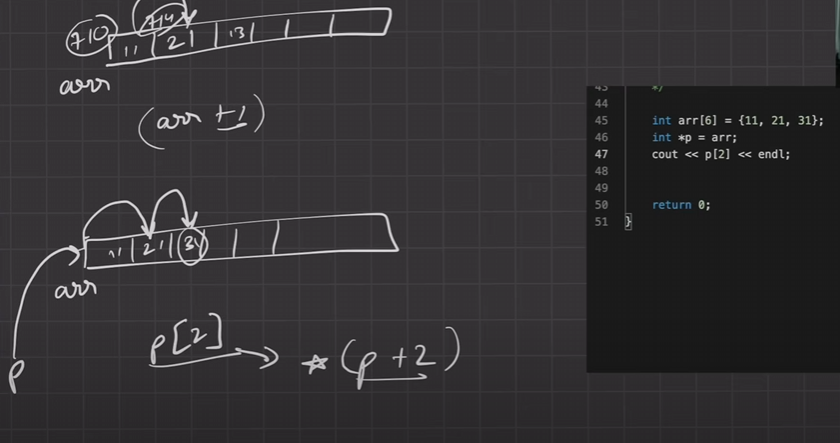 710 714
11 21 13
arr
(arr +1)
11 21 31
arr
p[2] → *(p+2)
p
43 */
44
45 int arr[6] = {11, 21, 31};
46 int *p = arr;
47 cout << p[2] << endl;
48
49
50 return 0;
51 }